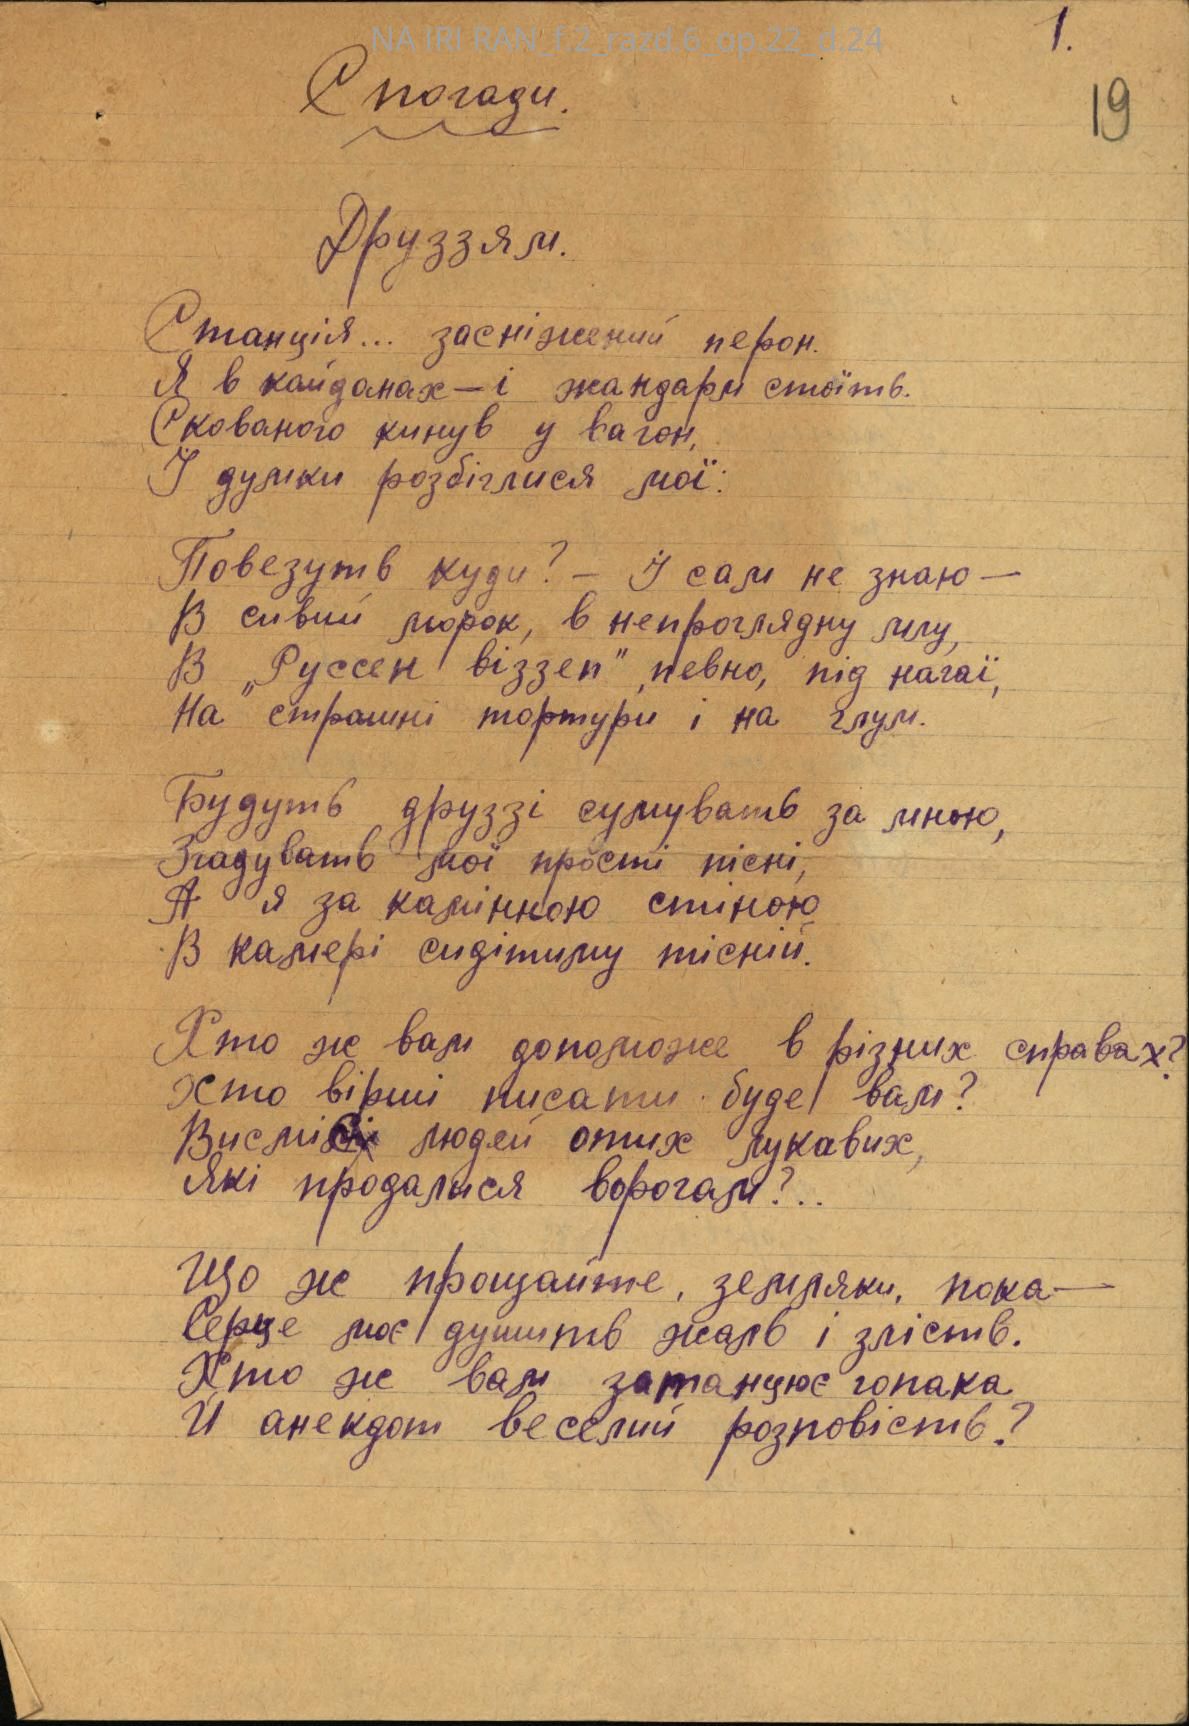 NA IRI RAN_f.2_razd.6_op.22_d.24
1.
19
Спогади.
Друззям.
Станція... засніжений перон.
Я в кайданах — і жандарм стоїть.
Скованого кинув у вагон,
І думки розбіглися мої:
Повезуть куди? — І сам не знаю —
В сивий морок, в непроглядну млу,
В „Руссен віззен" певно, під нагаї,
На страшні тортури і на глум.
Будуть друззі сумувать за мною,
Згадувать мої прості пісні,
А я за камінною стіною
В камері сидітиму тісній.
Хто ж вам допоможе в різних справах?
Хто вірші писати буде вам?
людей отих лукавих,
Які продалися ворогам?..
Що ж прощайте, земляки, пока —
Серце моє душить жаль і злість.
Хто ж вам затанцює гопака
Й анекдот веселий розповість?